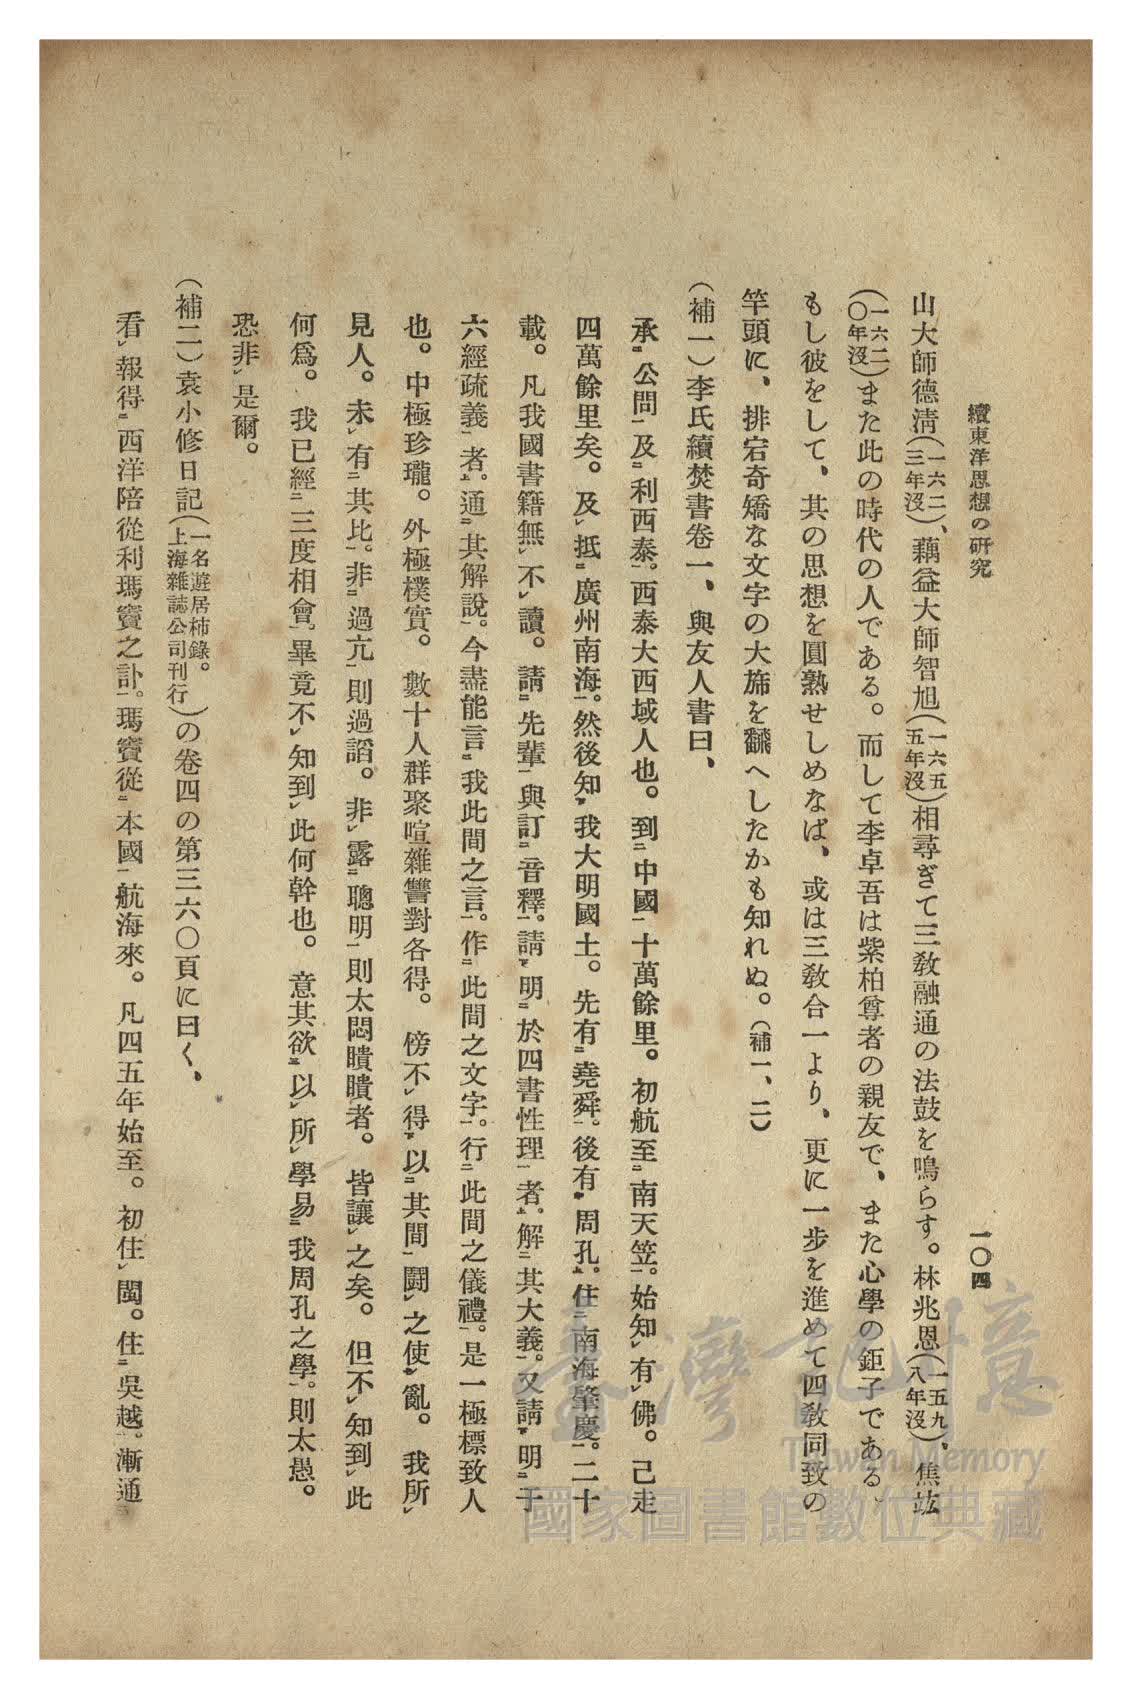 續東洋思想の研究
一〇四
山大師德淸(一六二三年沒)、藕益大師智旭(一六五五年沒)相尋ぎて三敎融通の法鼓を鳴らす。林兆恩(一五九八年沒)、焦竑
(一六二〇年沒)また此の時代の人である。而して李卓吾は紫柏尊者の親友で、また心學の鉅子である。
もし彼をして、其の思想を圓熟せしめなば、或は三敎合一より、更に一步を進めて四敎同致の
竿頭に、排宕奇矯な文字の大旆を飜へしたかも知れぬ。(補一、二)
(補一)李氏續焚書卷一、與友人書曰、
承㆓公問㆒及㆓利西泰㆒。西泰大西域人也。到㆓中國㆒十萬餘里。初航至㆓南天竺㆒。始知㆑有㆑佛。已走
四萬餘里矣。及㆑抵㆓廣州南海㆒。然後知㆘我大明國土。先有㆓堯舜㆒。後有㆗周孔㆖。住㆓南海肇慶㆒。二十
載。凡我國書籍無㆑不㆑讀。請㆘先輩㆒與訂㆓音釋㆒。請㆘明㆓於四書性理㆒者㆖。解㆓其大義㆒。又請㆘明㆓于
六經疏義㆒者㆖。通㆓其解說㆒。今盡能言㆓我此間之言㆒。作㆓此間之文字㆒。行㆓此間之儀禮㆒。是一極標致人
也。中極珍瓏。外極樸實。數十人群聚喧雜讐對各得。傍不㆑得㆘以㆓其間㆒鬪㆑之使㆖㆑亂。我所㆑
見人。未㆑有㆓其比㆒。非㆓過亢㆒則過諂。非㆑露㆓聰明㆒則太悶聵聵者。皆讓㆑之矣。但不㆑知到㆑此
何爲。我已經㆓三度相會㆒。畢竟不㆑知到㆑此何幹也。意其欲㆘以㆑所㆑學易㆗我周孔之學㆖。則太愚。
恐非㆑是爾。
(補二)袁小修日記(一名遊居柿錄。上海雜誌公司刊行)の卷四の第三六〇頁に曰く、
看㆑報得㆓西洋陪從利瑪竇之訃㆒。瑪竇從㆓本國㆒航海來。凡四五年始至。初住㆑閩。住㆓吳越㆒。漸通㆓
臺灣記憶
Taiwan Memory
國家圖書館數位典藏